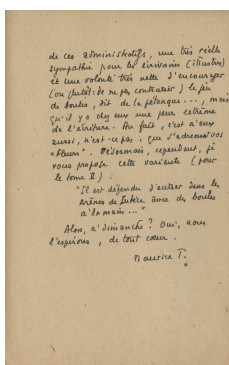 de ces administratifs, une très réelle
sympathie pour les écrivains (illustres)
et une volonté très nette d'encourager
(ou plutôt : de ne pas contrarier) le jeu
de boules, dit de la pétanque..., mais
qu'il y a chez eux une peur extrême
de l'écriture. Au fait, c'est à eux
aussi, n'est-ce pas, que s'adressent vos
"Fleurs". Désormais, cependant, je
vous propose cette variante (pour
le tome II) :
"Il est défendu d'entrer dans les
Arènes de Lutèce avec des boules
à la main..."
Alors, à dimanche ? Oui, nous
l'espérons, de tout cœur.
Maurice T.